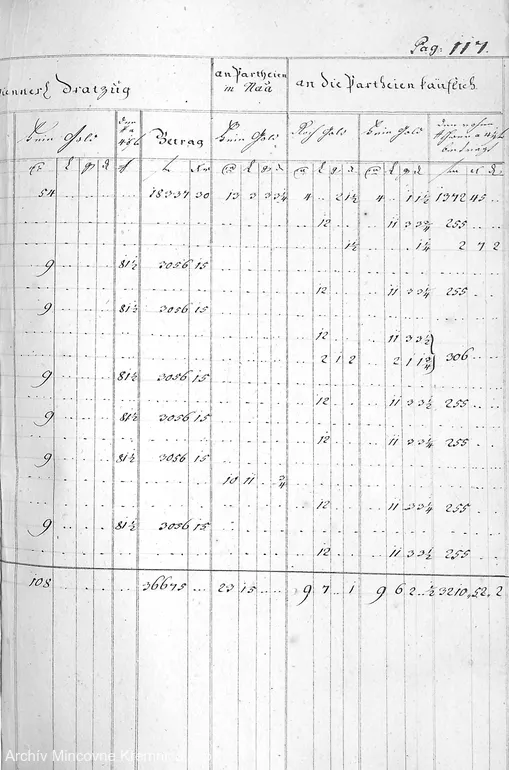 Pag: 117.
Dratzug an Partheien in Nau an die Partheien Käuflich.
Fein Gold Betrag Fein Gold Roh Gold Fein Gold
54 18337 30 13 3 3¾ 4 2 1½ 4 1 1½ 1372 45
12 11 3 3¾ 255
1½ 1¼ 2 7 2
9 81½ 3056 15
12 11 3 3¼ 255
9 81½ 3056 15
12 11 3 3½
2 1 2 2 1 1¾ 306
9 81½ 3056 15
12 11 3 3½ 255
9 81½ 3056 15
12 11 3 3¼ 255
9 81½ 3056 15
10 11 ¾
12 11 3 3¼ 255
9 81½ 3056 15
12 11 3 3½ 255
108 36675 23 15 9 7 1 9 6 2 ½ 3210 52 2
Archiv Mincovne Kremnica